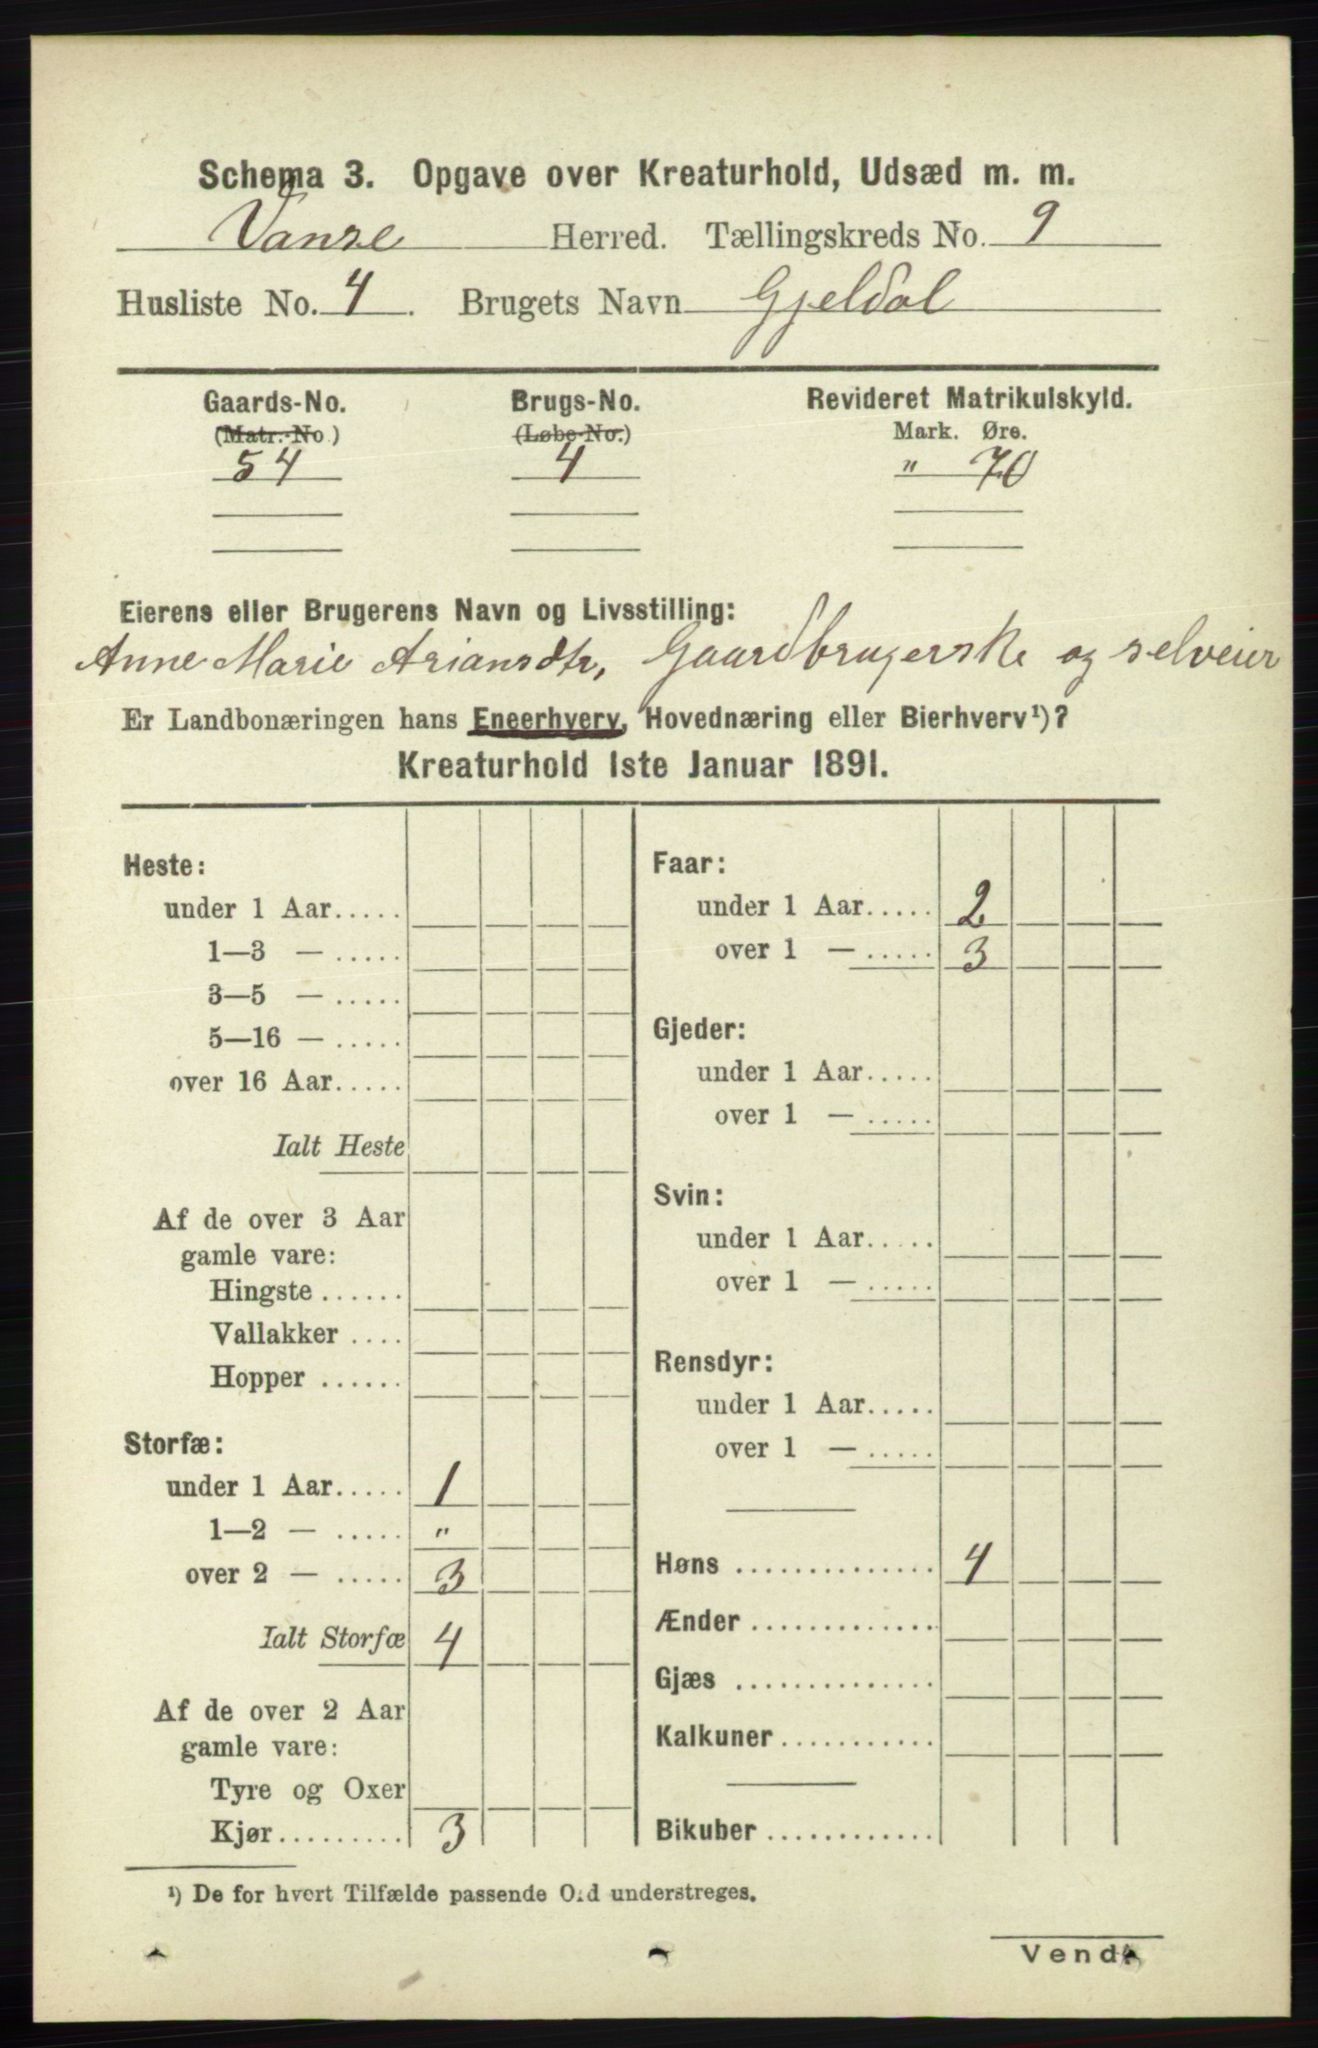 Schema 3. Opgave over Kreaturhold, Udsæd m. m.
Vanse Herred. Tællingskreds No. 9
Husliste No. 4. Brugets Navn Gjeldal
Gaards-No. Brugs-No. Revideret Matrikulskyld.
(Matr.-No.) (Løbe-No.) Mark. Øre.
54 4 " 70
Eierens eller Brugerens Navn og Livsstilling:
Anne Marie Ariansdtr, Gaardbrugerske og selveier
Er Landbonæringen hans Eneerhverv, Hovednæring eller Bierhverv¹)?
Kreaturhold 1ste Januar 1891.
Heste:
under 1 Aar.....
1—3 — .....
3—5 — .....
5—16 — .....
over 16 Aar.....
Ialt Heste
Af de over 3 Aar
gamle vare:
Hingste ......
Vallakker ....
Hopper ......
Storfæ:
under 1 Aar..... 1
1—2 — ..... "
over 2 — ..... 3
Ialt Storfæ 4
Af de over 2 Aar
gamle vare:
Tyre og Oxer
Kjør......... 3
Faar:
under 1 Aar..... 2
over 1 — ..... 3
Gjeder:
under 1 Aar.....
over 1 — .....
Svin:
under 1 Aar.....
over 1 — .....
Rensdyr:
under 1 Aar.....
over 1 — .....
Høns .............. 4
Ænder .............
Gjæs ..............
Kalkuner...........
Bikuber ............
¹) De for hvert Tilfælde passende Ord understreges.
Vend.